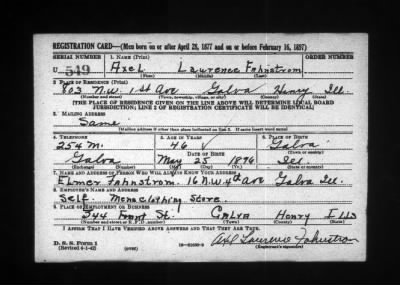 REGISTRATION CARD—(Men born on or after April 28, 1877 and on or before February 16, 1897)
SERIAL NUMBER 1. NAME (Print) ORDER NUMBER
U 549 Axel Laurence Fahnstrom
(First) (Middle) (Last)
2. PLACE OF RESIDENCE (Print)
803 N.W. 1st Ave Galva Henry Ill.
(Number and street) (Town, township, village, or city) (County) (State)
[THE PLACE OF RESIDENCE GIVEN ON THE LINE ABOVE WILL DETERMINE LOCAL BOARD
JURISDICTION; LINE 2 OF REGISTRATION CERTIFICATE WILL BE IDENTICAL]
3. MAILING ADDRESS
Same
[Mailing address if other than place indicated on line 2. If same insert word same]
4. TELEPHONE 5. AGE IN YEARS 6. PLACE OF BIRTH
254 M. 46 Galva
DATE OF BIRTH (Town or county)
Galva May 25 1896 Ill.
(Exchange) (Number) (Mo.) (Day) (Yr.) (State or country)
7. NAME AND ADDRESS OF PERSON WHO WILL ALWAYS KNOW YOUR ADDRESS
Elmer Fahnstrom. 16 N.W. 4th Ave Galva Ill.
8. EMPLOYER'S NAME AND ADDRESS
Self. Mens clothing Store.
9. PLACE OF EMPLOYMENT OR BUSINESS
344 Front St. Galva Henry Ills
(Number and street or R. F. D. number) (Town) (County) (State)
I AFFIRM THAT I HAVE VERIFIED ABOVE ANSWERS AND THAT THEY ARE TRUE.
D. S. S. Form 1
(Revised 4-1-42) (over) Axel Laurence Fahnstrom
(Registrant's signature)